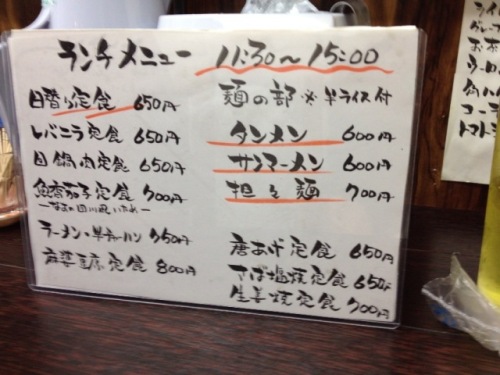 ランチメニュー 11:30〜15:00
日替り定食 650円
レバニラ定食 650円
回鍋肉定食 650円
魚香茄子定食 700円
ーなすの四川風いためー
ラーメン・半チャーハン 750円
麻婆豆腐定食 800円
麺の部 ※半ライス付
タンメン 600円
サンマーメン 600円
担々麺 700円
唐あげ定食 650円
さば塩焼定食 650円
生姜焼定食 700円
コーラ
トマト